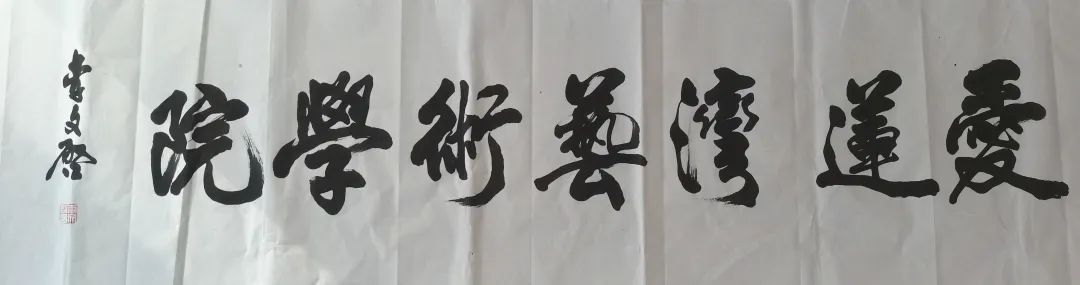 愛蓮灣藝術學院
李文啓